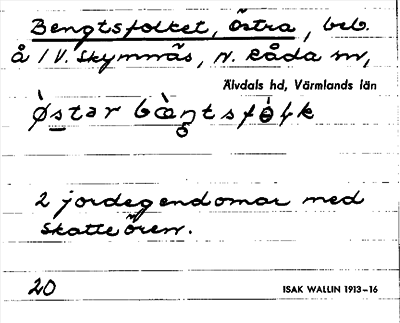 Bengtsfolket, Östra, beb.
å 1 V. Skymnäs, N. Råda sn,
Älvdals hd, Värmlands län
2 jordegendomar med
skatteören.
20 ISAK WALLIN 1913–16